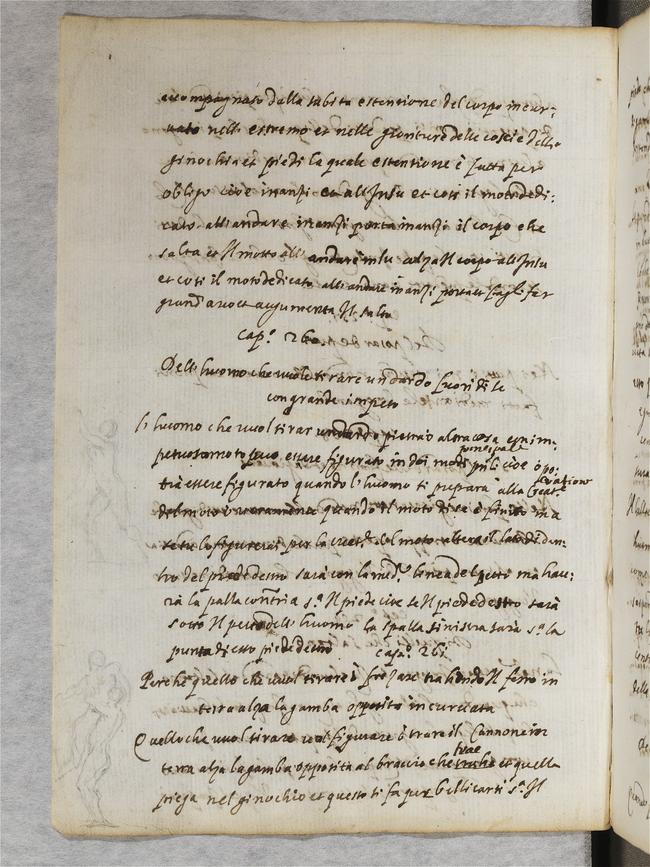 accompagnato dalla subita estentione del corpo incur:
uato nelli estremo et nelle gionture delle coscie delle
ginochia et piedi la quale estentione è fatta per
obliqo cioè inanzi et all Insu et cosi il moto dedi:
cato all andare inanzi porta inanzi il corpo che
salta et Il motto all andare in su alza Il corpo all Insu
et cosi il moto dedicato all andare inanzi porta et fagli far
grand arco et augumenta Il salto
cap.º 260.
Dell huomo che vuole tirare un dardo fuori di se
con grande impeto
L huomo che vuol tirar un dardo o pietra o altra cosa con im
petuoso moto puo essere figurato in doi modi principale cioè o po:
tra essere figurato quando l huomo ti prepara alla creatione
del moto o veramente quando il moto di se è finito ma
se tu lo figurerai per la creat.e del moto all hora il lato di den
tro del piede
sarà con la med.ª linea del petto ma haue:
rà la spalla contraria s.ª Il piede cioe se Il piede destro sarà
sotto Il peso dell huomo la spalla sinistra sarà s.ª la
punta di esso piede destro cap.º 261
Perche quello che vuol tirare ò frezare trahendo Il ferro in
terra alza la gamba opposita incuruata
Quello che vuol tirare uol figurare ò trare il Cannone in
terra alza la gamba opposita al braccio che trae et quella
piega nel ginochio et questo ti fa per bellicarsi s.ª Il